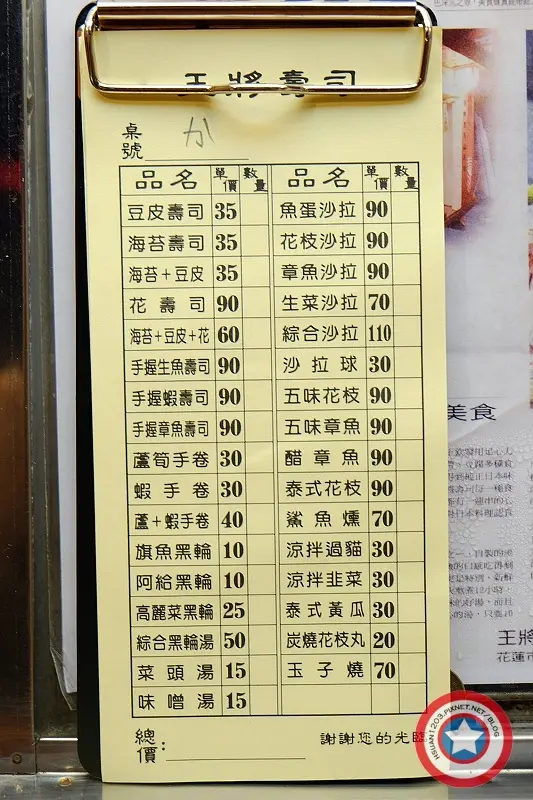 王將壽司
桌號 か
品名 單價 數量 品名 單價 數量
豆皮壽司 35 魚蛋沙拉 90
海苔壽司 35 花枝沙拉 90
海苔+豆皮 35 章魚沙拉 90
花壽司 90 生菜沙拉 70
海苔+豆皮+花 60 綜合沙拉 110
手握生魚壽司 90 沙拉球 30
手握蝦壽司 90 五味花枝 90
手握章魚壽司 90 五味章魚 90
蘆筍手卷 30 醋章魚 90
蝦手卷 30 泰式花枝 90
蘆+蝦手卷 40 鯊魚燻 70
旗魚黑輪 10 涼拌過貓 30
阿給黑輪 10 涼拌韭菜 30
高麗菜黑輪 25 泰式黃瓜 30
綜合黑輪湯 50 炭燒花枝丸 20
菜頭湯 15 玉子燒 70
味噌湯 15
總價:
謝謝您的光臨
美食
王將
花蓮市
HSUAN1203.PIXNET.NET/BLOG